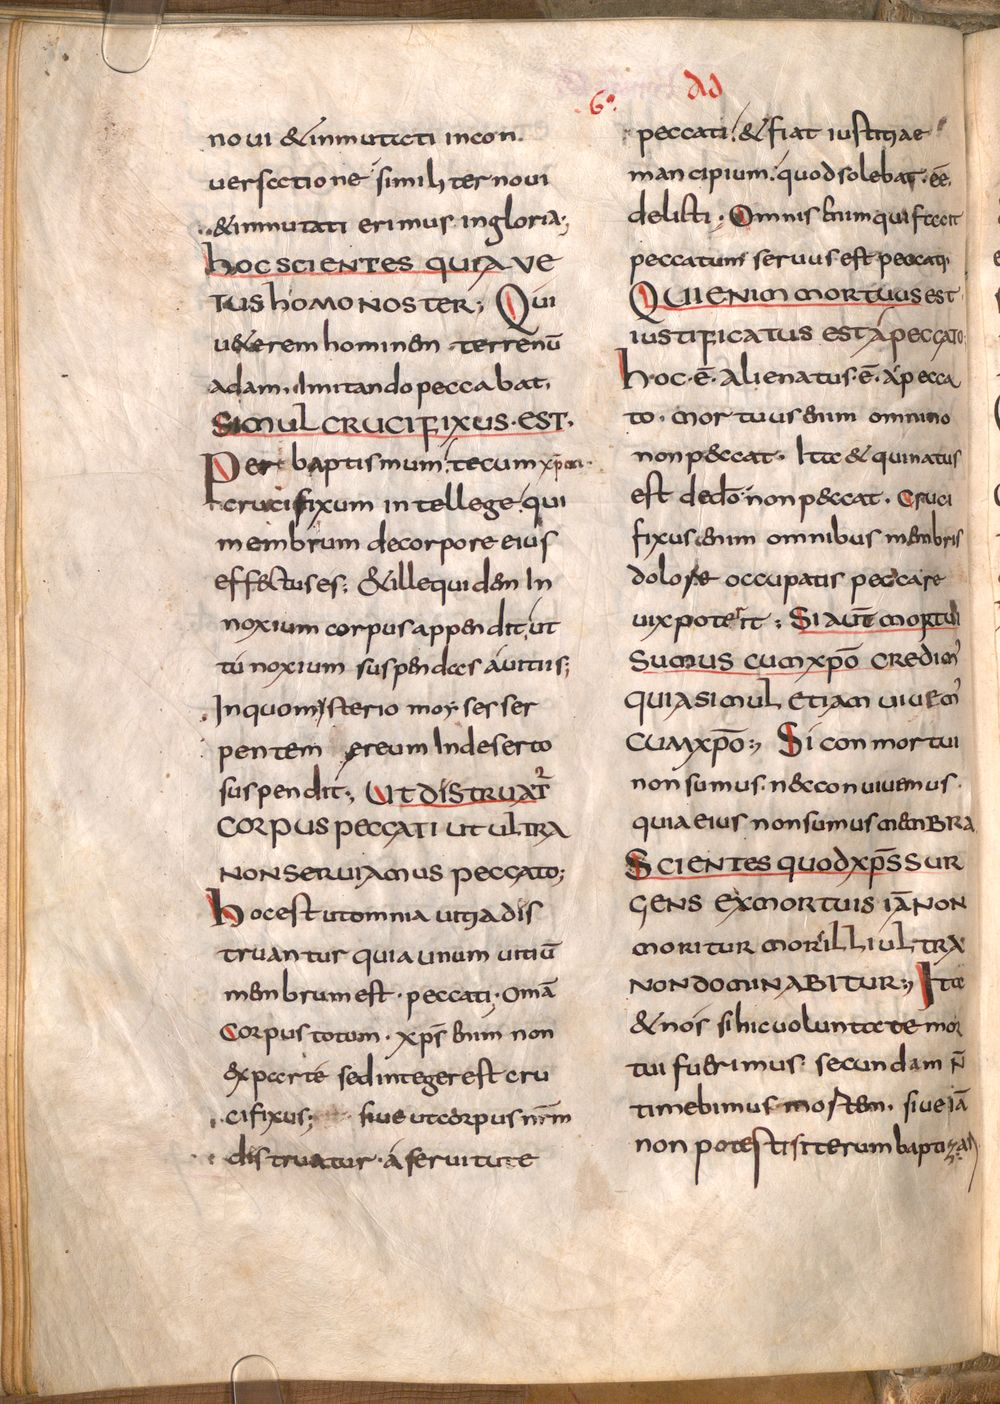 6º. AD
noui & inmutati incon
uersatione similiter noui
& inmutati erimus in gloria;
hoc scientes quia ve
tus homo noster; Qui
ueterem hominem terrenū
adam. Imitando peccabat.
Simul crucifixus. est.
Per baptismum. tecum xp̄m
crucifixum intellege. qui
membrum de corpore eius
effectus es; & ille quidem in
noxium corpus appendit. ut
tū noxium suspendas á uitiis;
In quo misterio moyses ser
pentem ereum in deserto
suspendit; Ut distruat᷑
corpus peccati ut ultra
non seruiamus peccato;
hoc est ut omnia uitia dis
truantur quia unum uitiū
membrum est. peccati. Omā
Corpus totum. xp̄s enim non
ex parte sed integer est cru
cifixus; siue ut corpus nr̄m
distruatur. á seruitute
peccati. & fiat iustitiae
mancipium. quod solebat. eē.
delicti. Omnis enim qui facit
peccatum seruus est peccati
Qui enim mortuus est
iustificatus est á peccato
hoc. ē. alienatus. ē. á pecca
to. mortuus enim omnino
non peccat. Ita & qui natus
est de dō. non peccat. Cruci
fixus enim omnibus membris
dolore occupatis peccare
uix poterit; Si autē mortui
Sumus cum xp̄o credim᾿
quia simul etiam uiuem᾿
cum xp̄o; Si con mortui
non sumus. nec con uiuemus.
quia eius non sumus membra
Scientes quod xp̄s sur
gens ex mortuis iā non
moritur mor illi ultra
non dominabitur; Ita
& nos si hic uoluntate mor
tui fuerimus. secundam n̄
timebimus mortem. siue iā
non potest iterum baptizari